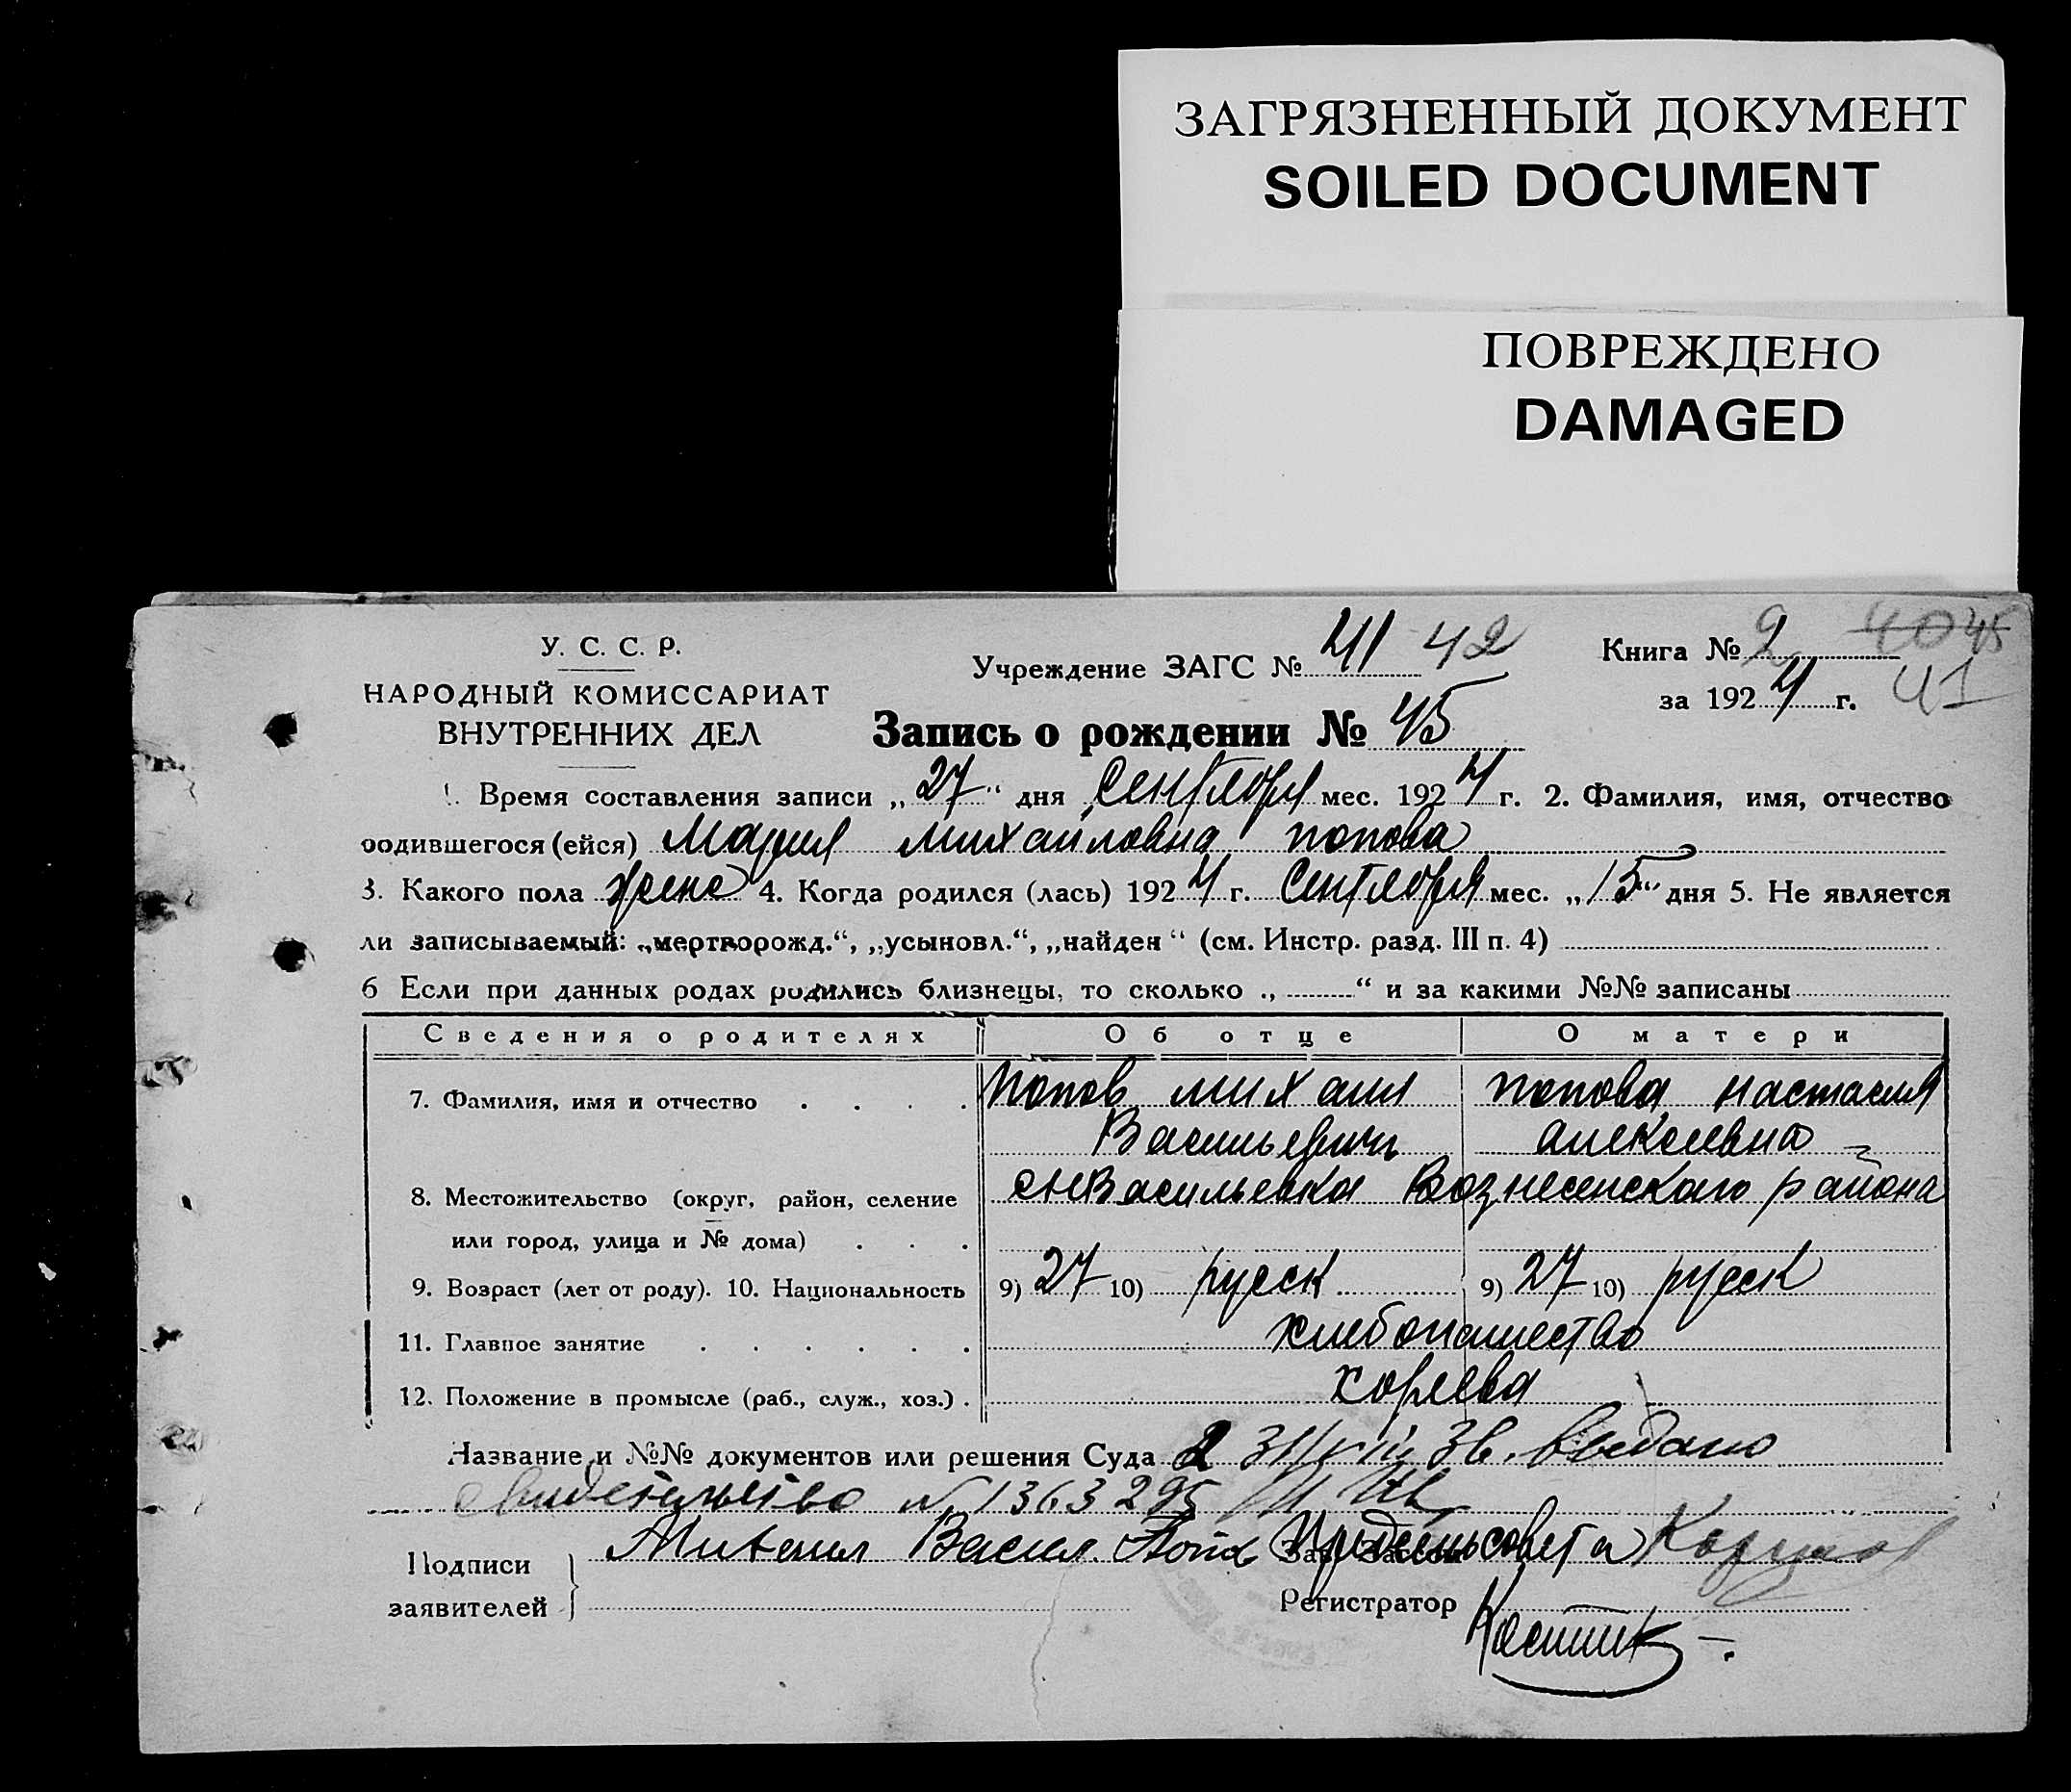 ЗАГРЯЗНЕННЫЙ ДОКУМЕНТ
SOILED DOCUMENT
ПОВРЕЖДЕНО
DAMAGED
У. С. С. Р.
НАРОДНЫЙ КОМИССАРИАТ
ВНУТРЕННИХ ДЕЛ
Учреждение ЗАГС № 41 42
Книга № 2 40 45
за 1924 г. 41
Запись о рождении № 45
1. Время составления записи „27“ дня Сентября мес. 1924 г. 2. Фамилия, имя, отчество
родившегося (ейся) Мария Михайловна Попова
3. Какого пола женс 4. Когда родился (лась) 1924 г. Сентября мес. „15“ дня 5. Не является
ли записываемый: „мертворожд.“, „усыновл.“, „найден“ (см. Инстр. разд. III п. 4)
6 Если при данных родах родились близнецы, то сколько „ “ и за какими №№ записаны
Сведения о родителях Об отце О матери
7. Фамилия, имя и отчество Попов Михаил Попова Настасия
Васильевич Алексеевна
8. Местожительство (округ, район, селение Васильевка Вознесенского района
или город, улица и № дома)
9. Возраст (лет от роду). 10. Национальность 9) 27 10) русск 9) 27 10) русск
11. Главное занятие хлебопашество
12. Положение в промысле (раб., служ., хоз.)
Название и №№ документов или решения Суда Выдано
свидетельство № 1363295
Подписи Михаил Васил. Попов сельсовета
заявителей Регистратор